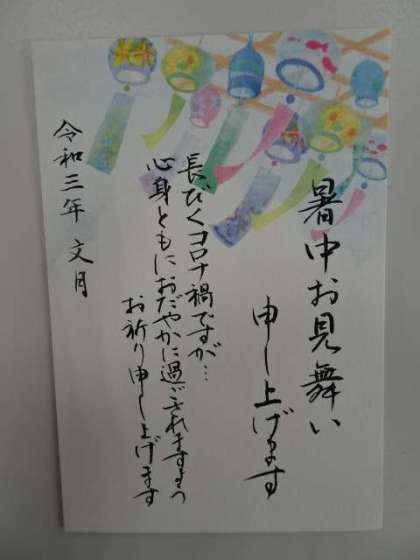 暑中お見舞い
申し上げます
長びくコロナ禍ですが…
心身ともにおだやかに過ごされますよう
お祈り申し上げます
令和三年 文月